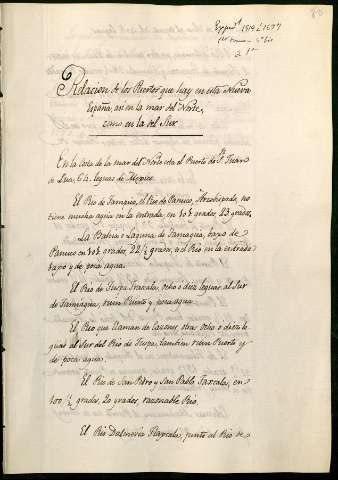 Relacion de los Puertos que hay en esta Nueva
España, así en la mar del Norte,
como en la del Sur
En la Costa de la mar del Norte está el Puerto de Sn. Juan
de Lua, 6 a. leguas de Mexico.
El Rio de Tampico, el Rio de Panuco, Arzobispado, no
tiene mucha agua en la entrada, en grados, 23 grados.
La Bahia o Laguna de Tamiagua, baxo de
Panuco en grados, 22 1/2 grados, es el Rio en la entrada
baxo y de poca agua.
El Rio de Tuspa Tlaxcala, ocho o diez leguas al Sur
de Tamiagua, ruin Puerto y poca agua.
El Rio que llaman de Cazones, tras ocho o diez le
guas al Sur del Rio de Tuspa, tambien ruin Puerto y
de poca agua.
El Rio de San Pedro y San Pablo Taxcala, en
100 1/2 grados, 20 grados, razonable Rio.
El Rio Tlaxcala, junto al Rio de